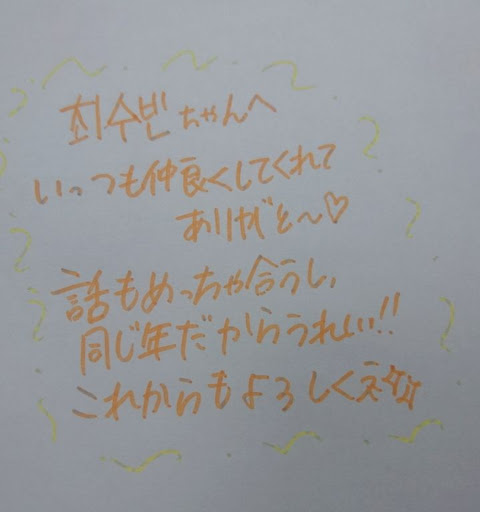 최수빈ちゃんへ
いっつも仲良くしてくれて
ありがと〜♡
話もめっちゃ合うし、
同じ年だからうれしい!!
これからもよろしくえ☆☆